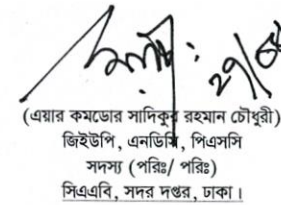 (এয়ার কমডোর সাদিকুর রহমান চৌধুরী)
জিইউপি, এনডিসি, পিএসসি
সদস্য (পরিঃ/ পরিঃ)
সিএএবি, সদর দপ্তর, ঢাকা।